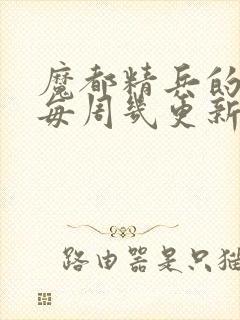 魔都精兵的
每周几更新
路由器是只猫